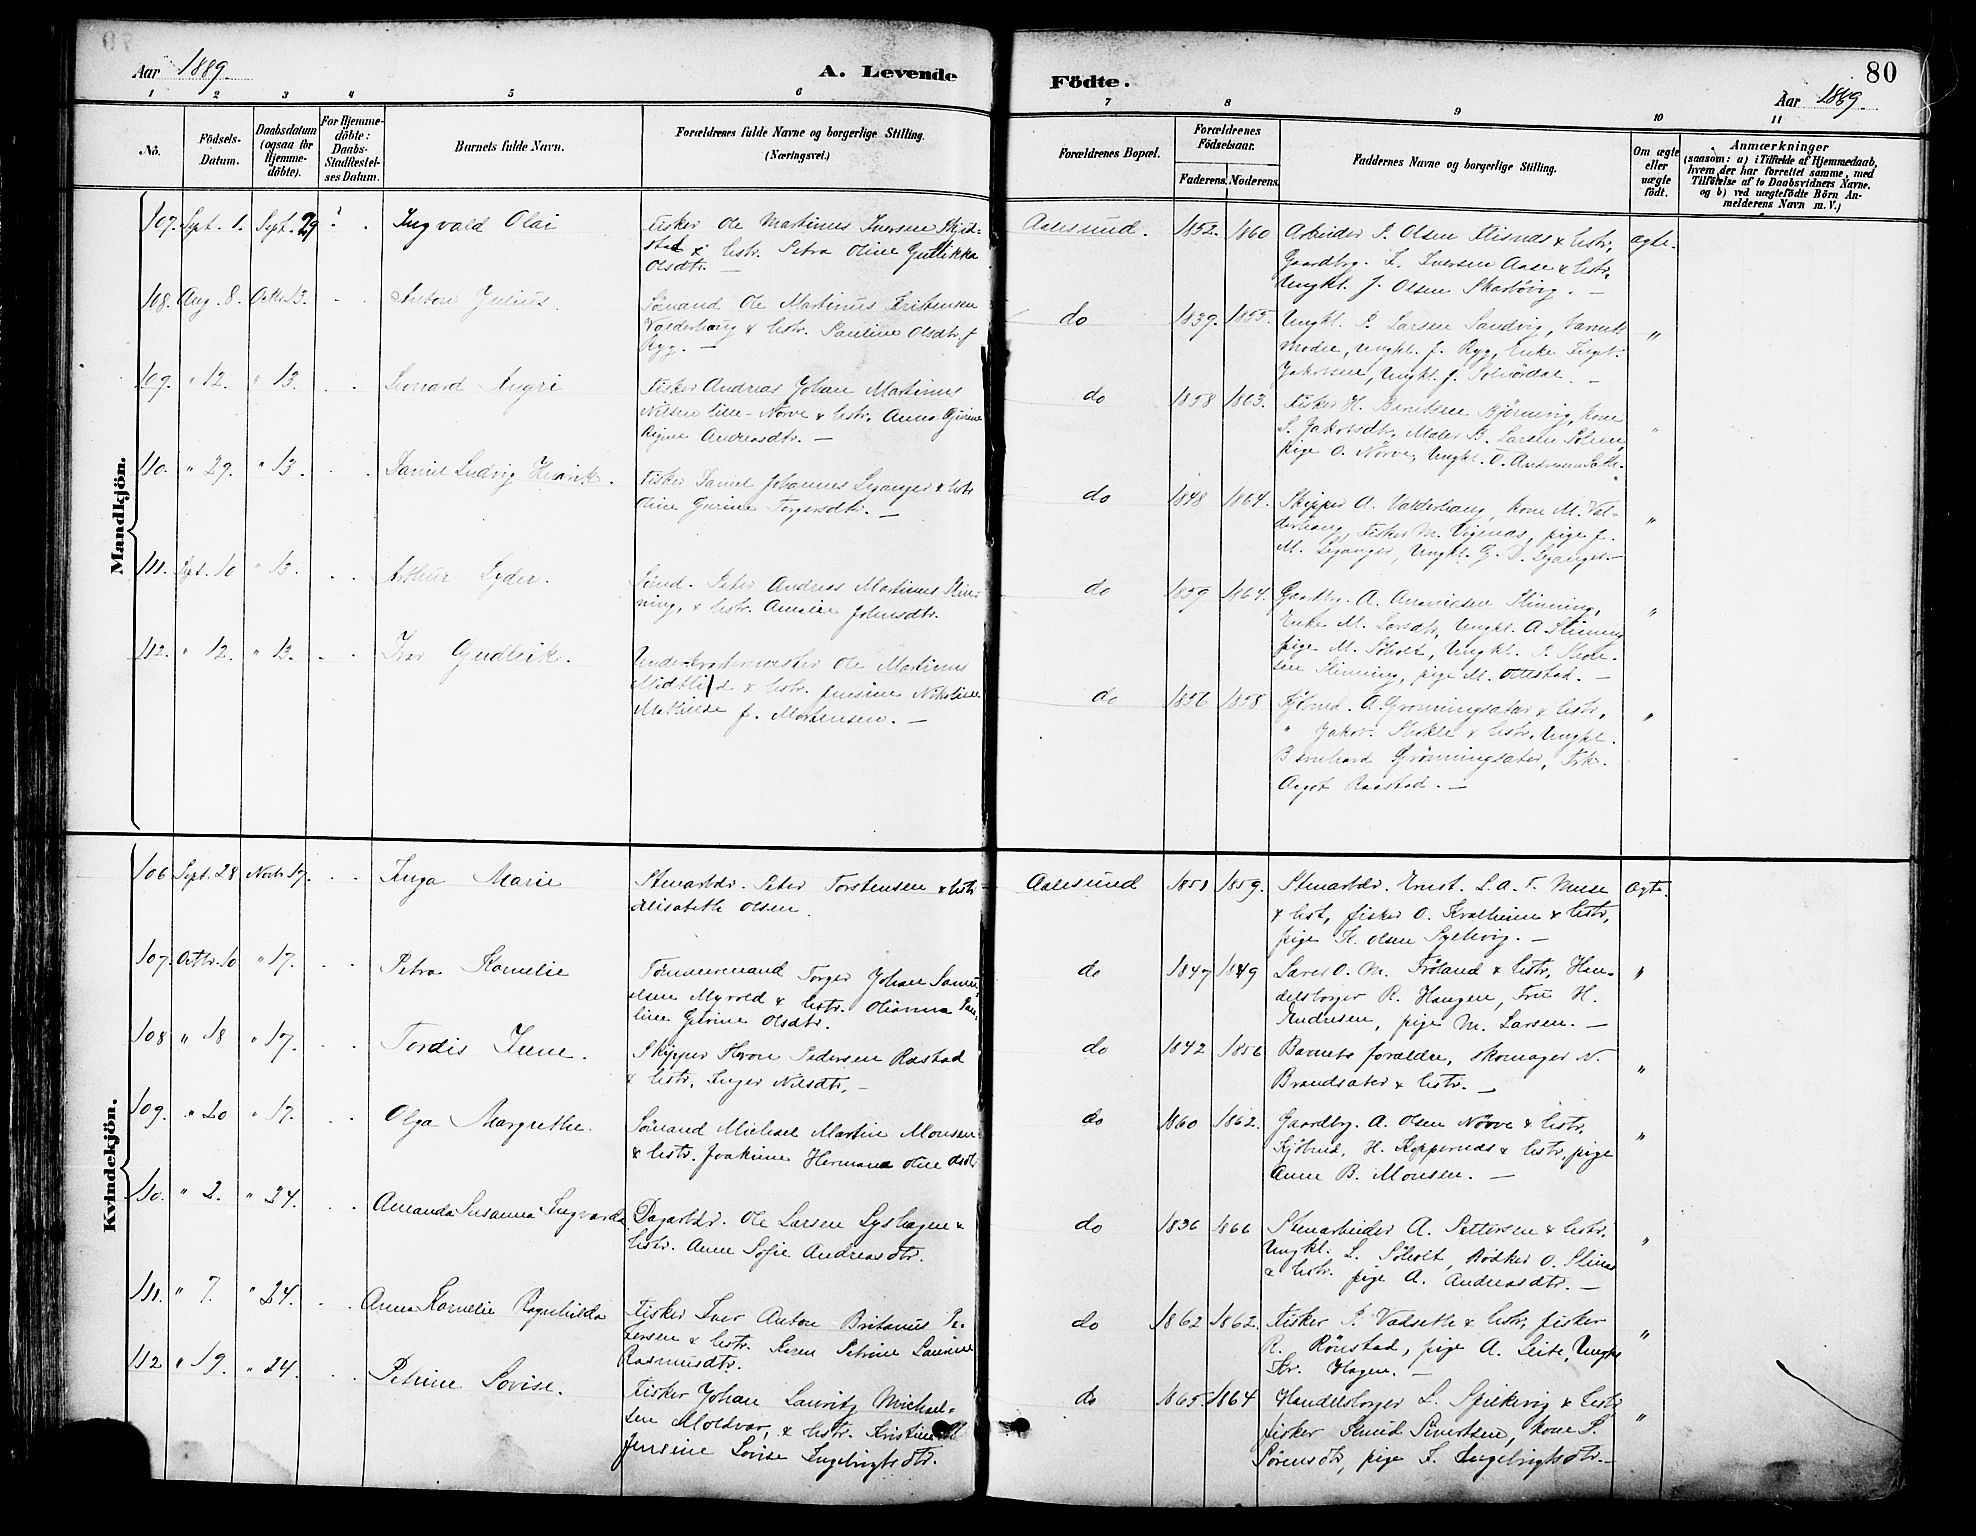 Aar 1889.
A. Levende
Födte.
80
Aar 1889.
1 2 3 4 5 6 7 8 9 10 11
No.
Födsels-Datum.
Daabsdatum (ogsaa for Hjemme-döbte).
For Hjemme-döbte: Daabs-Stadfæstel-ses Datum.
Barnets fulde Navn.
Forældrenes fulde Navne og borgerlige Stilling. (Næringsvei.)
Forældrenes Bopæl.
Forældrenes Födselsaar.
Faderens. Moderens.
Faddernes Navne og borgerlige Stilling.
Om ægte eller uægte födt.
Anmærkninger
(saasom: a) i Tilfælde af Hjemmedaab, hvem der har forrettet samme, med Tilföielse af to Daabsvidners Navne. og b) ved uægtefödte Börn An-melderens Navn m. V.)
Mandkjön.
107. Sept. 1. Sept. 29 Ingvald Olai
Fisker Ole Martinus Iversen
& hstr. Petra Oline Gullikka
Olsdtr. —
Aalesund. 1852. 1860
Arbeider P. Olsen Flisnes & hstr,
Gaardbr. I. Iversen Aase & hstr,
Ungkl. J. Olsen —
ægte.
108. Aug. 8. Octbr. 13. Anton Julius.
Sömand Ole Martinus Kristensen
Valderhaug & hstr. Pauline Olsdtr. f
Ryg. —
do 1839. 1855.
Ungkl. P. Larsen Sandvig, barnets
moder, Ungkl. J. Ryg, Enke Ingeb.
Jakobsen, Ungkl. J. —
"
109. " 12. " 13. Leonard Angri
Fisker Andreas Johan Martinus
Nilsen Lille-Nörve & hstr. Anna
Regine Andreasdtr. —
do 1858 1863.
Fisker H. Berntsen Björnvig, kone
S. Jakobsdtr, Maler B. Larsen
pige O. Nörve, Ungkl. O. Andresen
"
110. " 29. " 13. Daniel Ludvig Henrik.
Fisker Daniel Johannes Leganger & hstr
Oline Gurine Torgersdtr. —
do 1848 1864.
Skipper A. Valderhaug, kone M. Val-
derhaug, Fisker M. Vigenæs, pige J.
M. Leganger, Ungkl. G. D. Leganger —
"
111. Sept. 10 " 13. Arthur Lyder.
Sömd. Peter Andreas Martinus Slin-
ning, & hstr. Amalie Johnsdtr.
do 1859 1864.
Gaardbr. A. Slinning,
Enke M. Larsdtr, Ungkl. A Slinning
pige M. Söholt, Ungkl. P.
Slinning, pige M. Ottestad. —
"
112. " 12. " 13. Ivar Gudleik.
Underkvartermester Ole Martinus
Midtlid & hstr. Jensine Nikoline
Mathilde f. Mortensen. —
do 1856 1858
Kjöbmd. A. Grönningsæter & hstr,
" Jakob. & hstr, Ungkl.
Bernhard Grönningsæter, Frk.
Aagot Raastad. —
"
Kvindekjön.
106 Sept. 28 Novbr 17. Inga Marie
Stenarbdr. Peter Torstensen & hstr
Elisabeth Olsen.
Aalesund 1851 1859.
Stenarbdr. Ernst. L. A. F. Muse
& hst, fisker O. Kvalheim & hstr,
pige K. Olsen —
Ægte.
107. Octbr. 10 " 17. Petra Kornelie
Tömmermand Torger Johan Samu-
elsen Myrvold & hstr. Olianna Pau-
line Gurine Olsdtr.
do 1847 1849
Lærer O. M. Fröland & hstr, Han-
delsborger R. Haugen, Fru H.
Andresen, pige M. Larsen. —
"
108 " 18 " 17. Tordis Irene.
Skipper Haven Pedersen Rastad
& hstr. Inger Nilsdtr. —
do 1842 1856
Barnets forældre, skomager N.
Brandsæter & hstr. —
"
109. " 20 " 17. Olga Margrethe.
Sömand Michael Martin Monsen
& hstr. Joakime Hermana Oline Olsdtr
do 1860 1862.
Gaardbr. A. Olsen Nörve & hstr.
Kjöbmd. H. Koppernæs & hstr, pige
Anne B. Monsen. —
"
110. " 2. " 24. Amanda Susanna Ingvarda
Dagarbdr. Ole Larsen Lyshagen &
hstr. Anne Sofie Andreasdtr.
do 1836 1866
Stenarbeider A. Pettersen & hstr,
Ungkl. L. Söholt, Bödker O.
& hstr. pige A. Andreasdtr. —
"
111. " 7. " 24. Anna Kornelie Ragnhilda
Fisker Iver Anton Britanus Pe-
tersen & hstr. Karen Petrine Laurine
Rasmusdtr.
do 1862 1862.
Fisker P. Vadseth & hstr, fisker
R. Rönstad, pige A. Leite, Ungkl
Kr. Hagen. —
"
112 " 19. " 24. Petrine Lovise.
Fisker Johan Lauritz Michael-
sen Moldvær, & hstr. Kristine
Jensine Lovise Ingebrigtsdtr.
do 1865 1864
Handelsborger L. Spilkevig & hstr
fisker Knud Sivertsen, kone S.
Sörensdtr, pige I. Ingebrigtsdtr. —
"